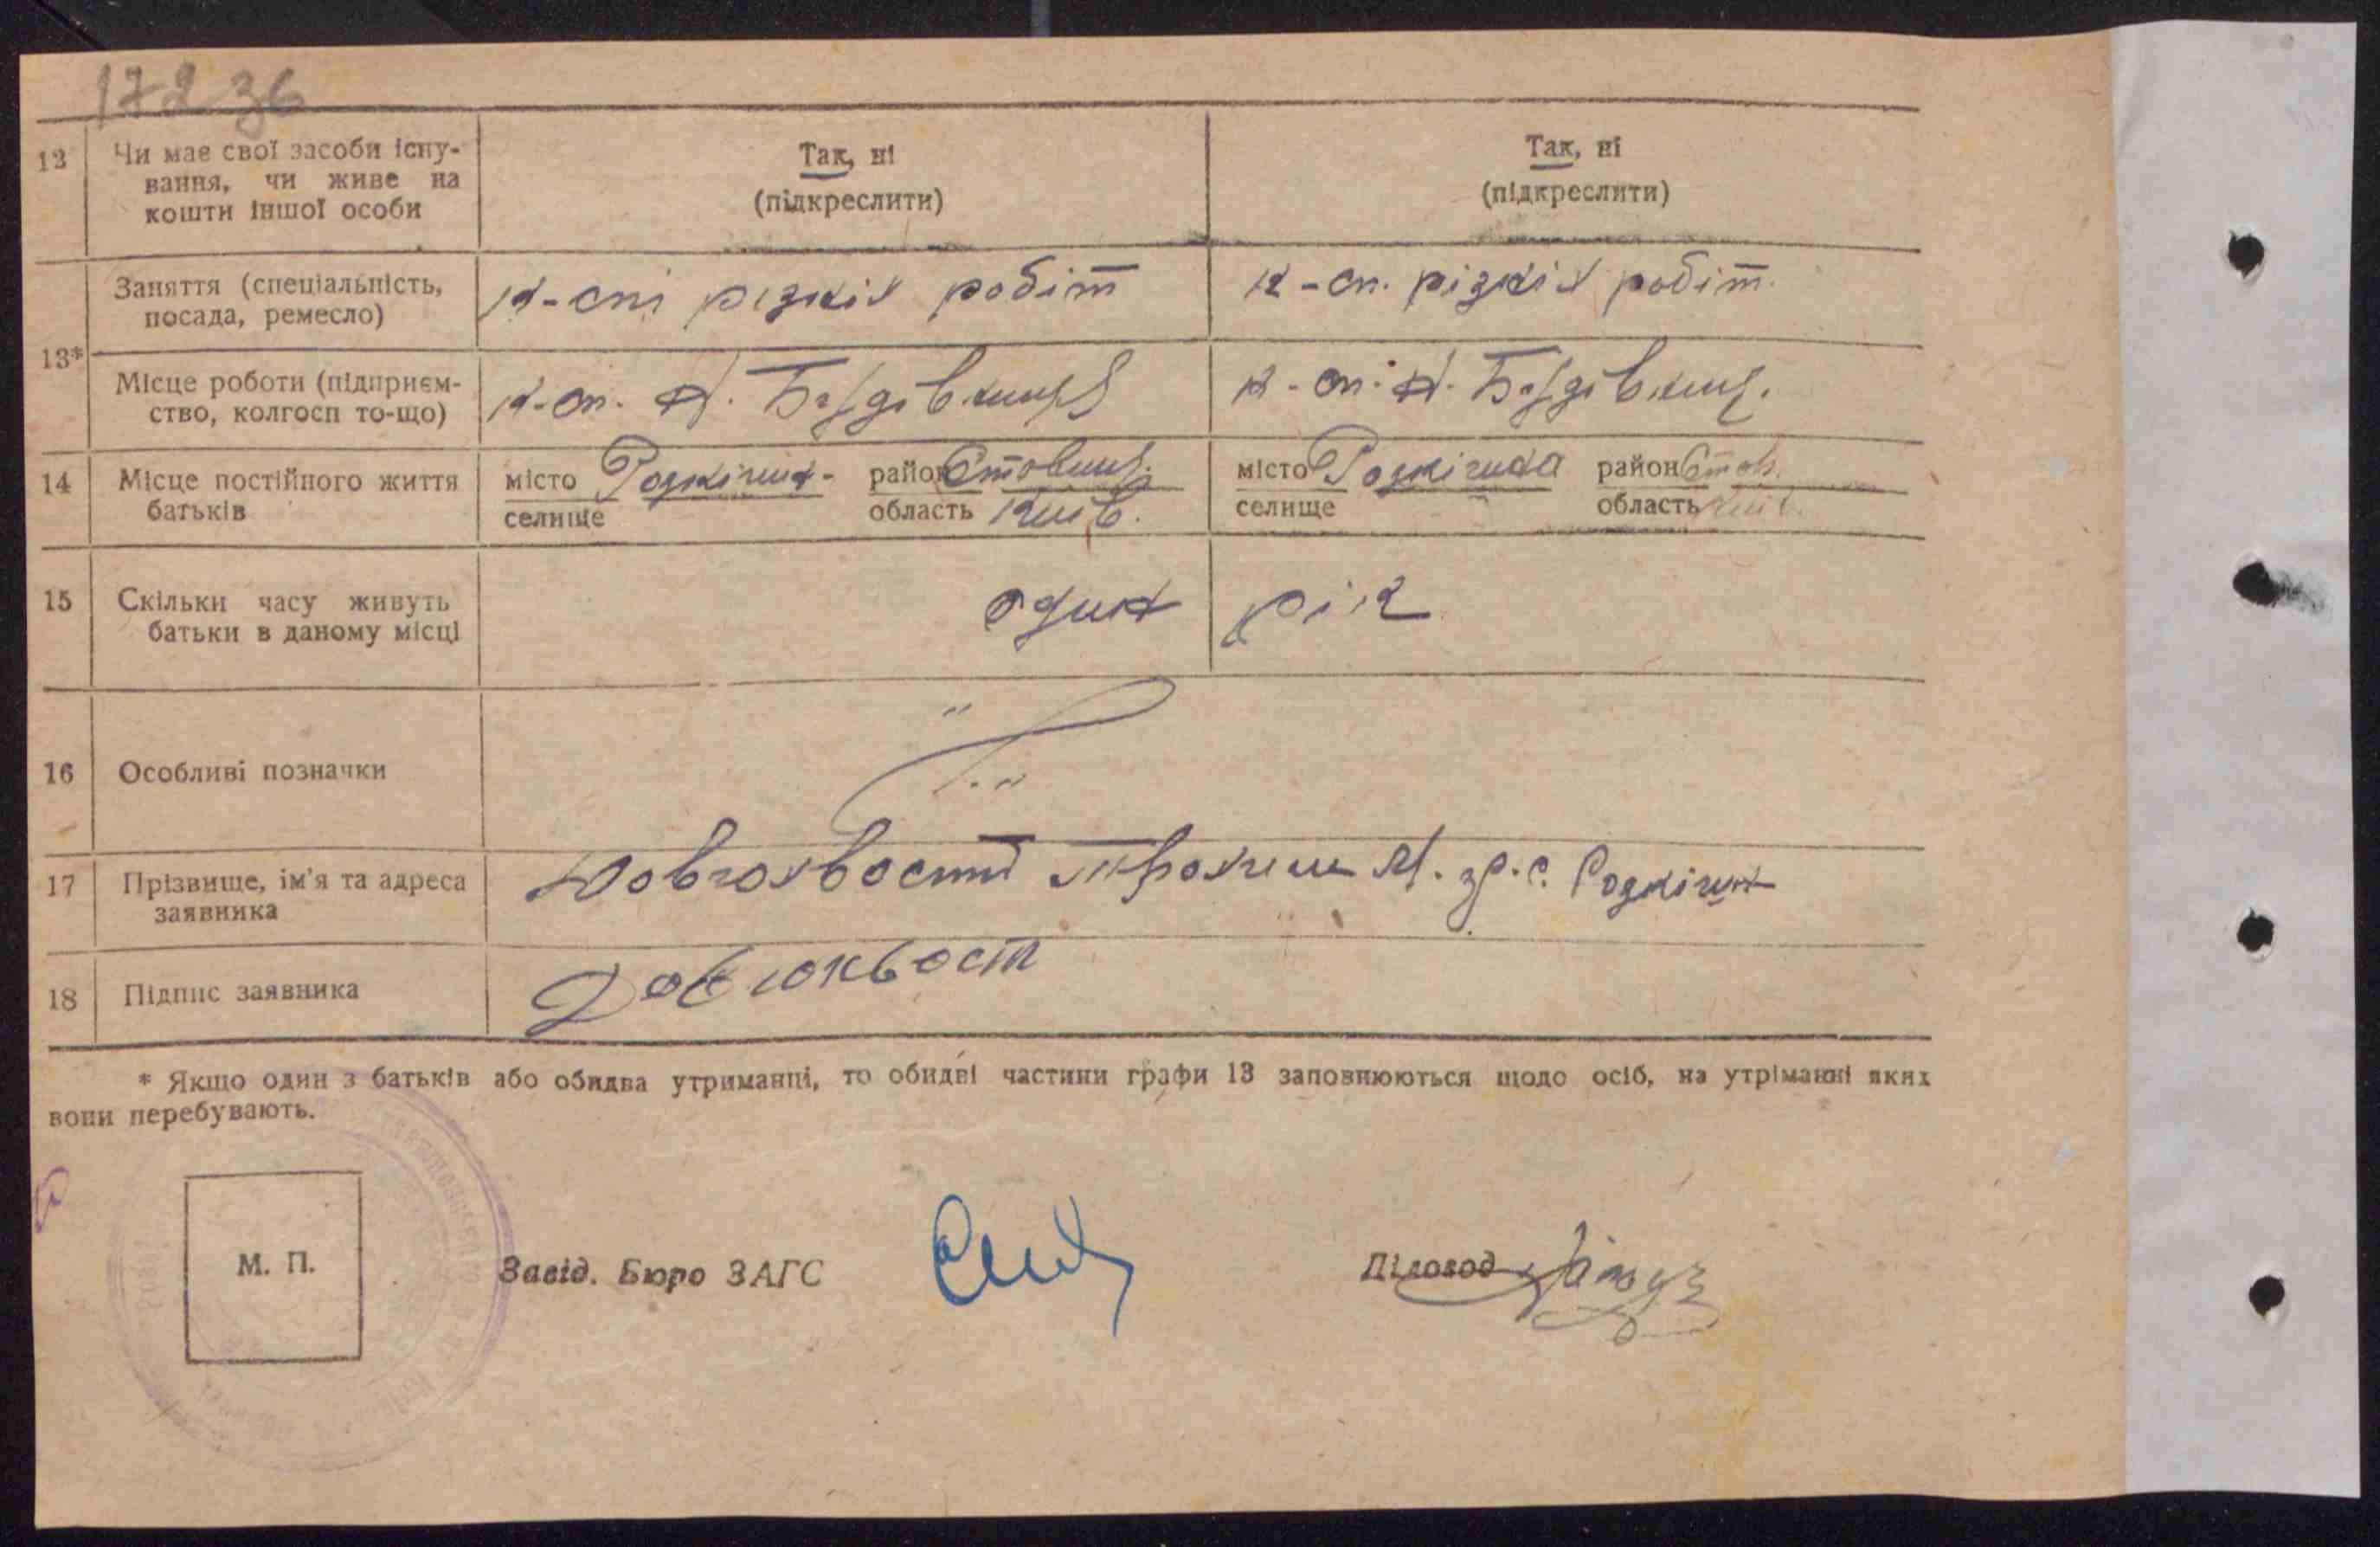 17236
12 Чи має свої засоби існу-
вання, чи живе на
кошти іншої особи
Так, ні
(підкреслити)
Так, ні
(підкреслити)
13*
Заняття (спеціальність,
посада, ремесло)
к-сп різних робіт
к-сп. різних робіт.
Місце роботи (підприєм-
ство, колгосп то-що)
к-сп.
к-сп.
14 Місце постійного життя
батьків
місто Родківка район Ставищ.
селище область Київ.
місто Родківка район Став.
селище область Київ.
15 Скільки часу живуть
батьки в даному місці
один рік
16 Особливі позначки
17 Прізвище, ім'я та адреса
заявника
Довгохвостий Трохим М. з с.
18 Підпис заявника
Довгохвост
* Якщо один з батьків або обидва утриманці, то обидві частини графи 13 заповнюються щодо осіб, на утріманні яких
вони перебувають.
М. П.
Завід. Бюро ЗАГС
Діловод